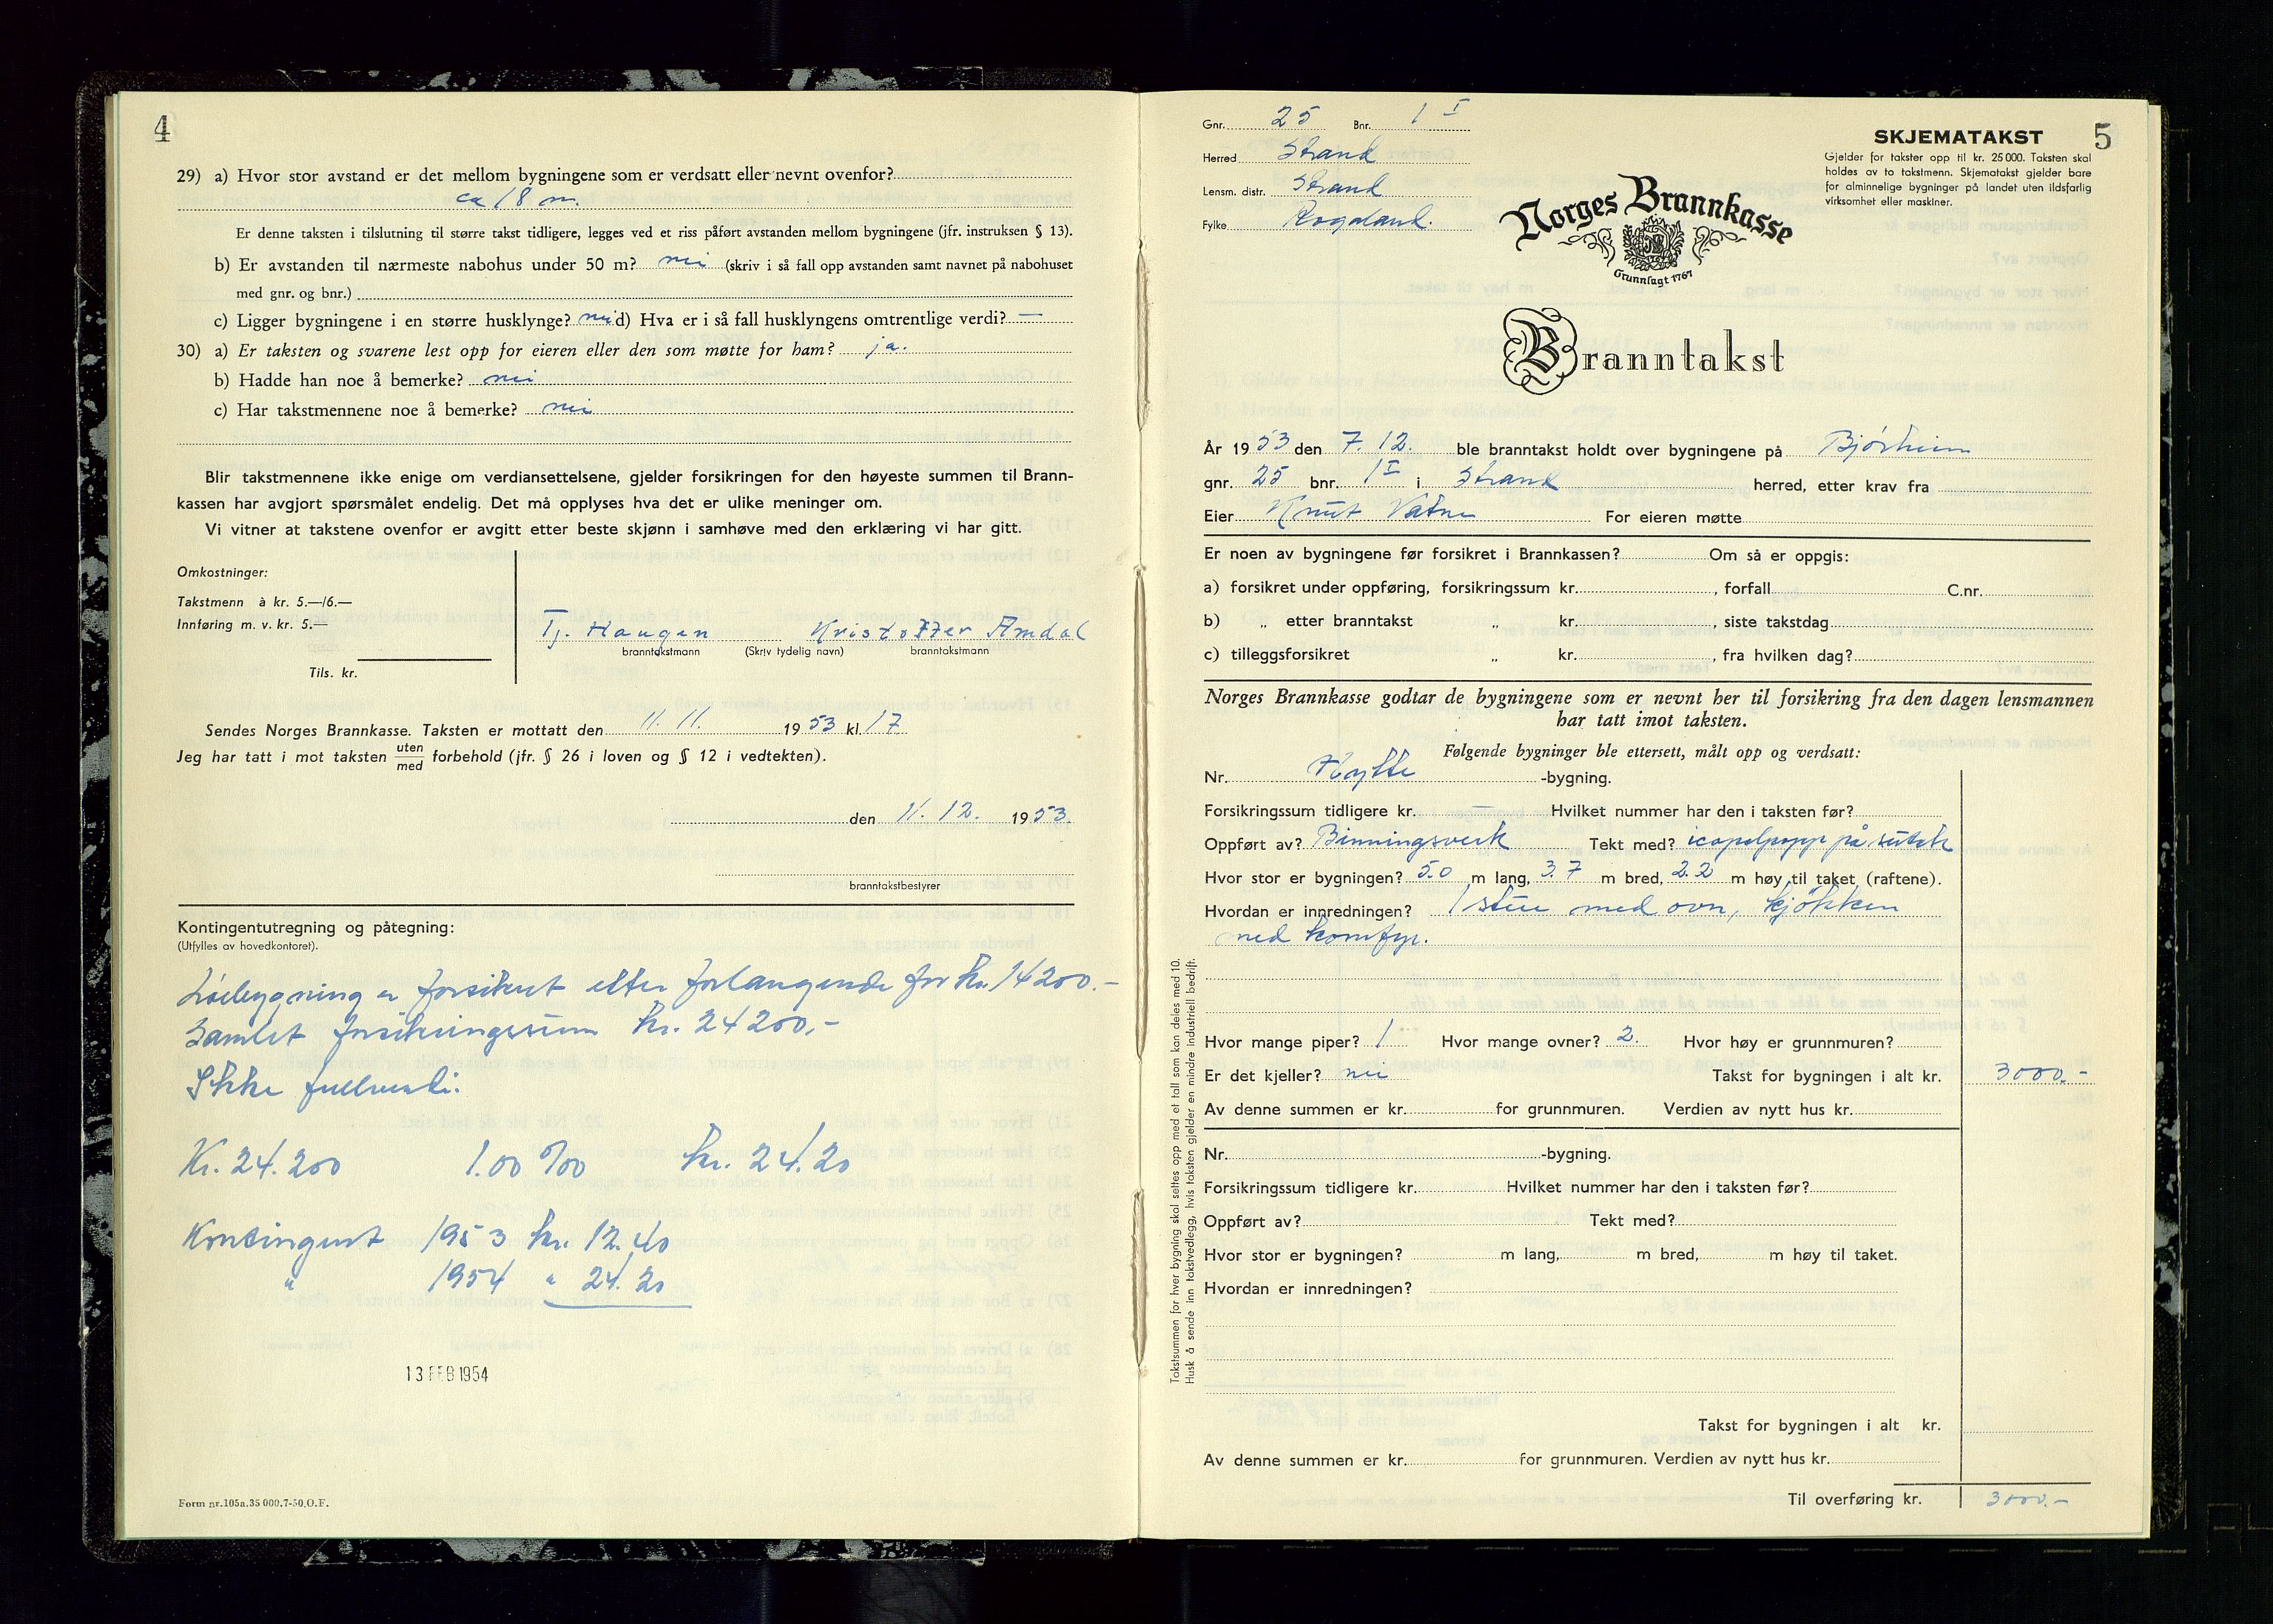 4
29) a) Hvor stor avstand er det mellom bygningene som er verdsatt eller nevnt ovenfor?
ca 18 m.
Er denne taksten i tilslutning til større takst tidligere, legges ved et riss påført avstanden mellom bygningene (jfr. instruksen § 13).
b) Er avstanden til nærmeste nabohus under 50 m? nei (skriv i så fall opp avstanden samt navnet på nabohuset
med gnr. og bnr.)
c) Ligger bygningene i en større husklynge? nei d) Hva er i så fall husklyngens omtrentlige verdi? —
30) a) Er taksten og svarene lest opp for eieren eller den som møtte for ham? ja.
b) Hadde han noe å bemerke? nei
c) Har takstmennene noe å bemerke? nei
Blir takstmennene ikke enige om verdiansettelsene, gjelder forsikringen for den høyeste summen til Brann-
kassen har avgjort spørsmålet endelig. Det må opplyses hva det er ulike meninger om.
Vi vitner at takstene ovenfor er avgitt etter beste skjønn i samhøve med den erklæring vi har gitt.
Omkostninger:
Takstmenn à kr. 5.—/6.—
Innføring m. v. kr. 5.—
Tils. kr.
Tj. Haugen Kristoffer Amdal
branntakstmann (Skriv tydelig navn) branntakstmann
Sendes Norges Brannkasse. Taksten er mottatt den 11. 11. 1953 kl. 17
Jeg har tatt i mot taksten uten/med forbehold (jfr. § 26 i loven og § 12 i vedtekten).
den 11. 12. 1953.
branntakstbestyrer
Kontingentutregning og påtegning:
(Utfylles av hovedkontoret).
Löebygning er forsikret etter forlangende for kr. 14200.-
Samlet forsikringssum kr. 24200.-
Ikke fullverdi.
Kr. 24.200 1.00 ‰ kr. 24.20
Kontingent 1953 kr. 12.40
" 1954 " 24.20
13 FEB 1954
Form nr.105a.35 000.7-50.O.F.
5
Gnr. 25 Bnr. 1 I
Herred Strand
Lensm. distr. Strand
Fylke Rogaland.
SKJEMATAKST
Gjelder for takster opp til kr. 25 000. Taksten skal
holdes av to takstmenn. Skjematakst gjelder bare
for alminnelige bygninger på landet uten ildsfarlig
virksomhet eller maskiner.
Norges Brannkasse
Grunnlagt 1767
Branntakst
År 1953 den 7. 12. ble branntakst holdt over bygningene på Bjørheim
gnr. 25 bnr. 1 I i Strand herred, etter krav fra
Eier Knut Vatne For eieren møtte
Er noen av bygningene før forsikret i Brannkassen? Om så er oppgis:
a) forsikret under oppføring, forsikringssum kr. , forfall C.nr.
b) „ etter branntakst „ kr. , siste takstdag
c) tilleggsforsikret „ kr. , fra hvilken dag?
Norges Brannkasse godtar de bygningene som er nevnt her til forsikring fra den dagen lensmannen
har tatt imot taksten.
Følgende bygninger ble ettersett, målt opp og verdsatt:
Nr. Hytte -bygning.
Forsikringssum tidligere kr. — Hvilket nummer har den i taksten før?
Oppført av? Binningsverk Tekt med? på sutak
Hvor stor er bygningen? 5.0 m lang, 3.7 m bred, 2.2 m høy til taket (raftene).
Hvordan er innredningen? 1 stue med ovn, kjökken
med komfyr.
Hvor mange piper? 1 Hvor mange ovner? 2. Hvor høy er grunnmuren?
Er det kjeller? nei Takst for bygningen i alt kr. 3000.-
Av denne summen er kr. for grunnmuren. Verdien av nytt hus kr.
Nr. -bygning.
Forsikringssum tidligere kr. Hvilket nummer har den i taksten før?
Oppført av? Tekt med?
Hvor stor er bygningen? m lang, m bred, m høy til taket.
Hvordan er innredningen?
Takst for bygningen i alt kr.
Av denne summen er kr. for grunnmuren. Verdien av nytt hus kr.
Til overføring kr. 3000.-
Takstsummen for hver bygning skal settes opp med et tall som kan deles med 10.
Husk å sende inn takstvedlegg, hvis taksten gjelder en mindre industriell bedrift.